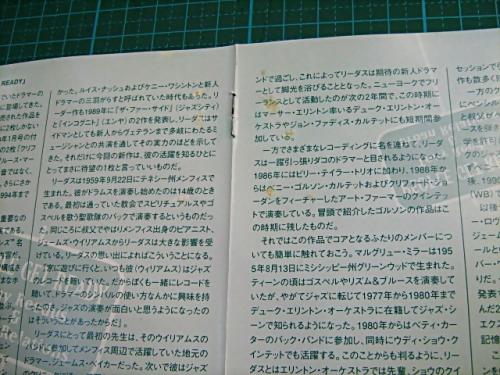 READY』
ていたドラマーの
に登場してきた。
された作品を
に2枚しかない
1年1月号の『
の2枚『クリフ
ブルース・マー
音ではなく、
、さらにさか
994年まで
重要なの
である。
ズ"名
内容だ。
かった。ルイス・ナッシュおよびケニー・ワシントンと新人
ドラマーの三羽がらすと呼ばれていた時代もあった。リ
ーダー作も1989年に『ザ・ファー・サイド』(ジャズシティ)
と『インコグニト』(エンヤ)の2作を発表し、リーダスはサ
イドマンとしても新人からヴェテランまで多岐にわたるミ
ュージシャンとの共演を通してその実力のほどを示して
きた。それだけに今回の新作は、彼の活躍を知るひとに
とってまさに待望の1枚と言っていいものだ。
リーダスは1959年9月22日にテネシー州メンフィスで
生まれた。彼がドラムスを演奏し始めたのは14歳のとき
である。最初は通っていた教会でスピリチュアルスやゴ
スペルを歌う聖歌隊のバックで演奏するというものだっ
た。同じころに叔父でやはりメンフィス出身のピアニスト、
ジェームス・ウイリアムスからリーダスは大きな影響を受
けている。リーダスの思い出によればこういうことになる。
「家に遊びに行くと、いつも彼(ウィリアムス)はジャズ
のレコードを聴いていた。だからぼくも一緒にレコードを
聴いて、ドラマーのシンバルの使い方なんかに興味を持
ったのさ。ジャズの演奏が面白いと思うようになったの
はそういうことがあったからだ」。
リーダスにとって最初の先生は、そのウイリアムスの
バンドに参加しメンフィス周辺で活躍していた地元の
ドラマー、ジェームス・ベイカーだった。次いで彼はジャズ
ンドで過ごし、これによってリーダスは期待の新人ドラマ
ーとして脚光を浴びることとなった。ニューヨークでフリ
ーランスとして活動したのが次の2年間で、この時期に
はマーサー・エリントン率いるデューク・エリントン・オー
ケストラやジョン・ファディス・カルテットにも短期間参加
している。
一方でさまざまなレコーディングに名を連ねて、リーダ
スは一躍引っ張りダコのドラマーと目されるようになった。
1986年にはビリー・テイラー・トリオに加わり、1988年か
らはベニー・ゴルソン・カルテットおよびクリフォード・ジョ
ーダンをフィーチャーしたアート・ファーマーのクインテッ
トで演奏している。冒頭で紹介したゴルソンの作品はこ
の時期に残したものだ。
それではこの作品でコアとなるふたりのメンバーにつ
いても簡単に触れておこう。マルグリュー・ミラーは195
5年8月13日にミシシッピー州グリーンウッドで生まれた。
ティーンの頃はゴスペルやリズム&ブルースを演奏して
いたが、やがてジャズに転じて1977年から1980年まで
デューク・エリントン・オーケストラに在籍してジャズ・シ
ーンで知られるようになった。1980年からはベティ・カー
ターのバック・バンドに参加し、同時にウディ・ショウ・ク
インテットでも活躍する。このことからも判るように、リー
ダスとはエリントン・オーケストラでは先輩、ショウのクイ
セッションで
作も数多く
一方の
ベキンに